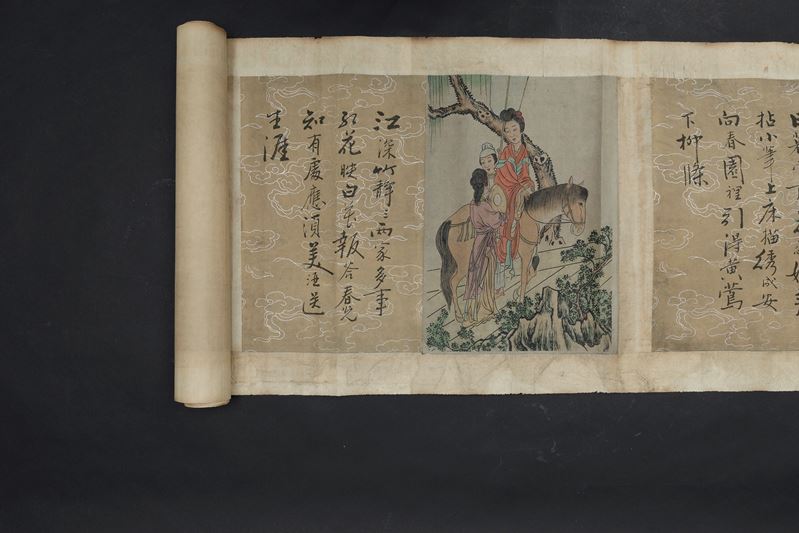 拈小筆上床描繡成安
向春園裡引得黃鶯
下柳條
江深竹靜三兩家多事
紅花映白花報答春光
知有處應須美酒送
生涯